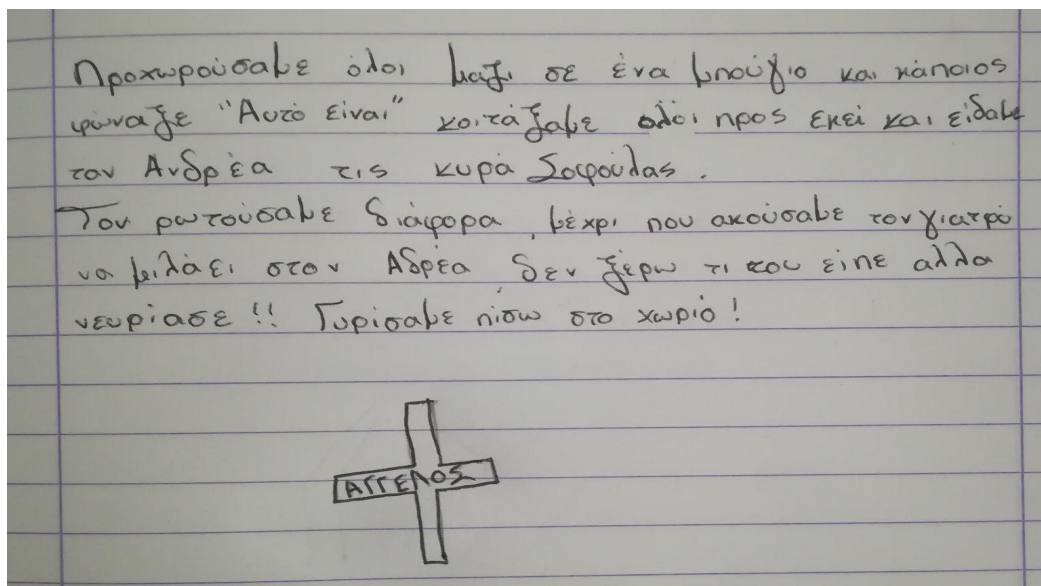 Προχωρούσαμε όλοι μαζι σε ένα μπούγιο και κάποιος
φώναξε "Αυτό είναι" κοιτάξαμε ολοι προς εκεί και είδαμε
τον Ανδρέα τις κυρά Σοφούλας.
Τον ρωτούσαμε διάφορα, μέχρι που ακούσαμε τον γιατρό
να μιλάει στον Αδρέα, δεν ξέρω τι του είπε αλλα
νευρίασε!! Γυρίσαμε πίσω στο χωριό!
ΑΓΓΕΛΟΣ